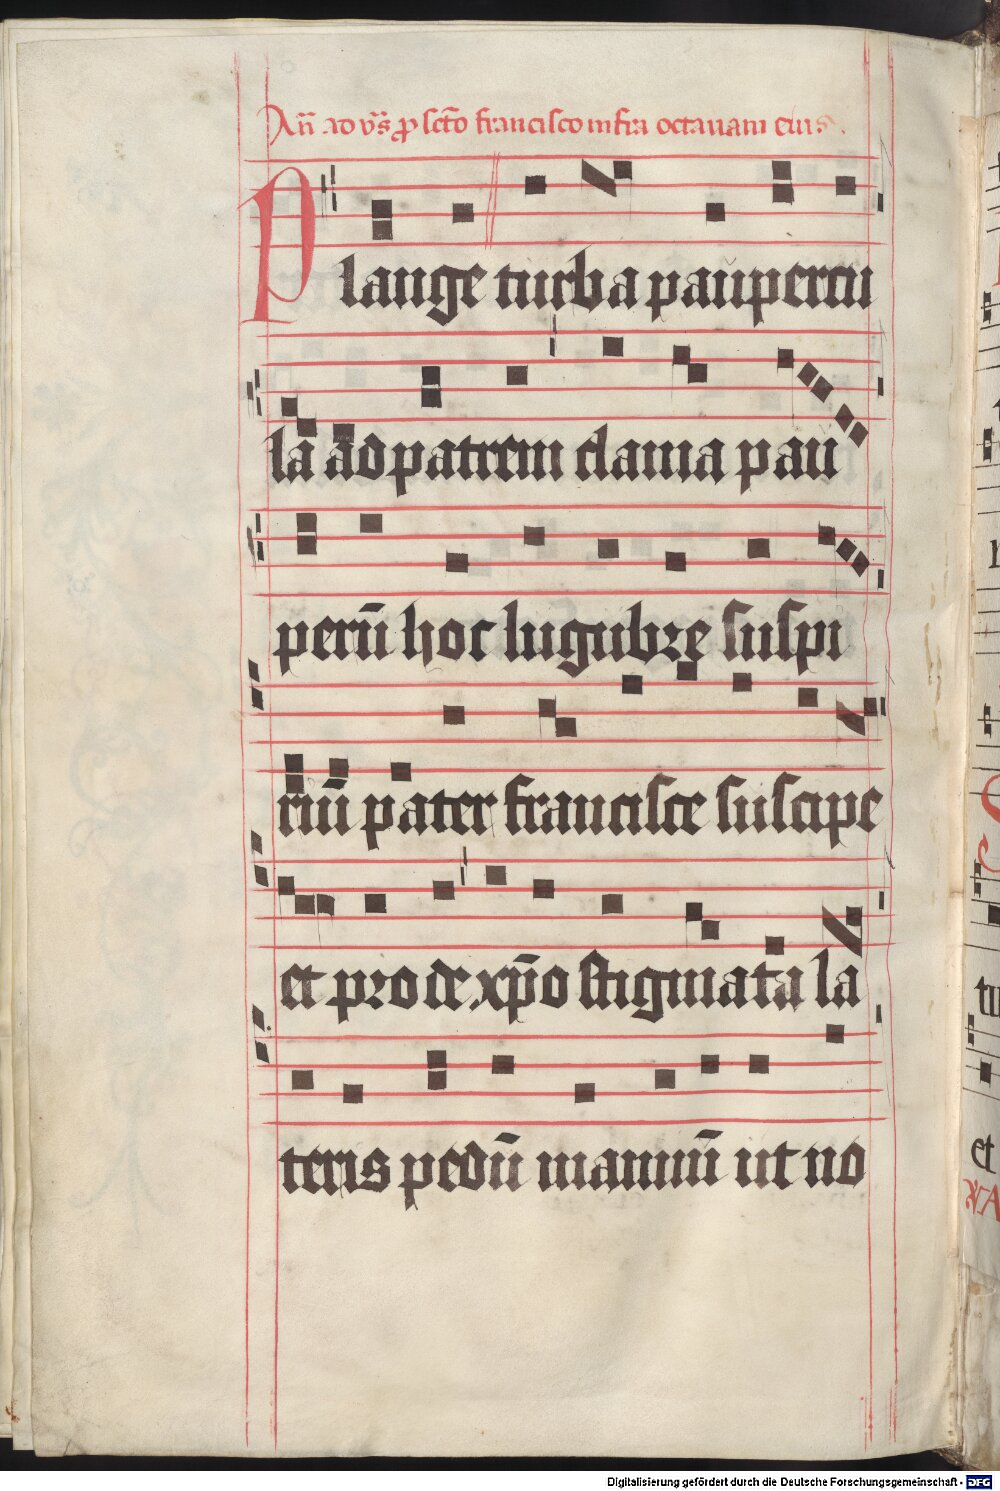 An̄ ad vr̄s p̱ sctō francisco infra octavam eius.
Plange turba paupercu
la ad patrem clama pau
perū hoc lugubre suspi
riū pater francisce suscipe
et prode xp̄o stigmata la
teris pedū manuū ut no
et
Digitalisierung gefördert durch die Deutsche Forschungsgemeinschaft - DFG